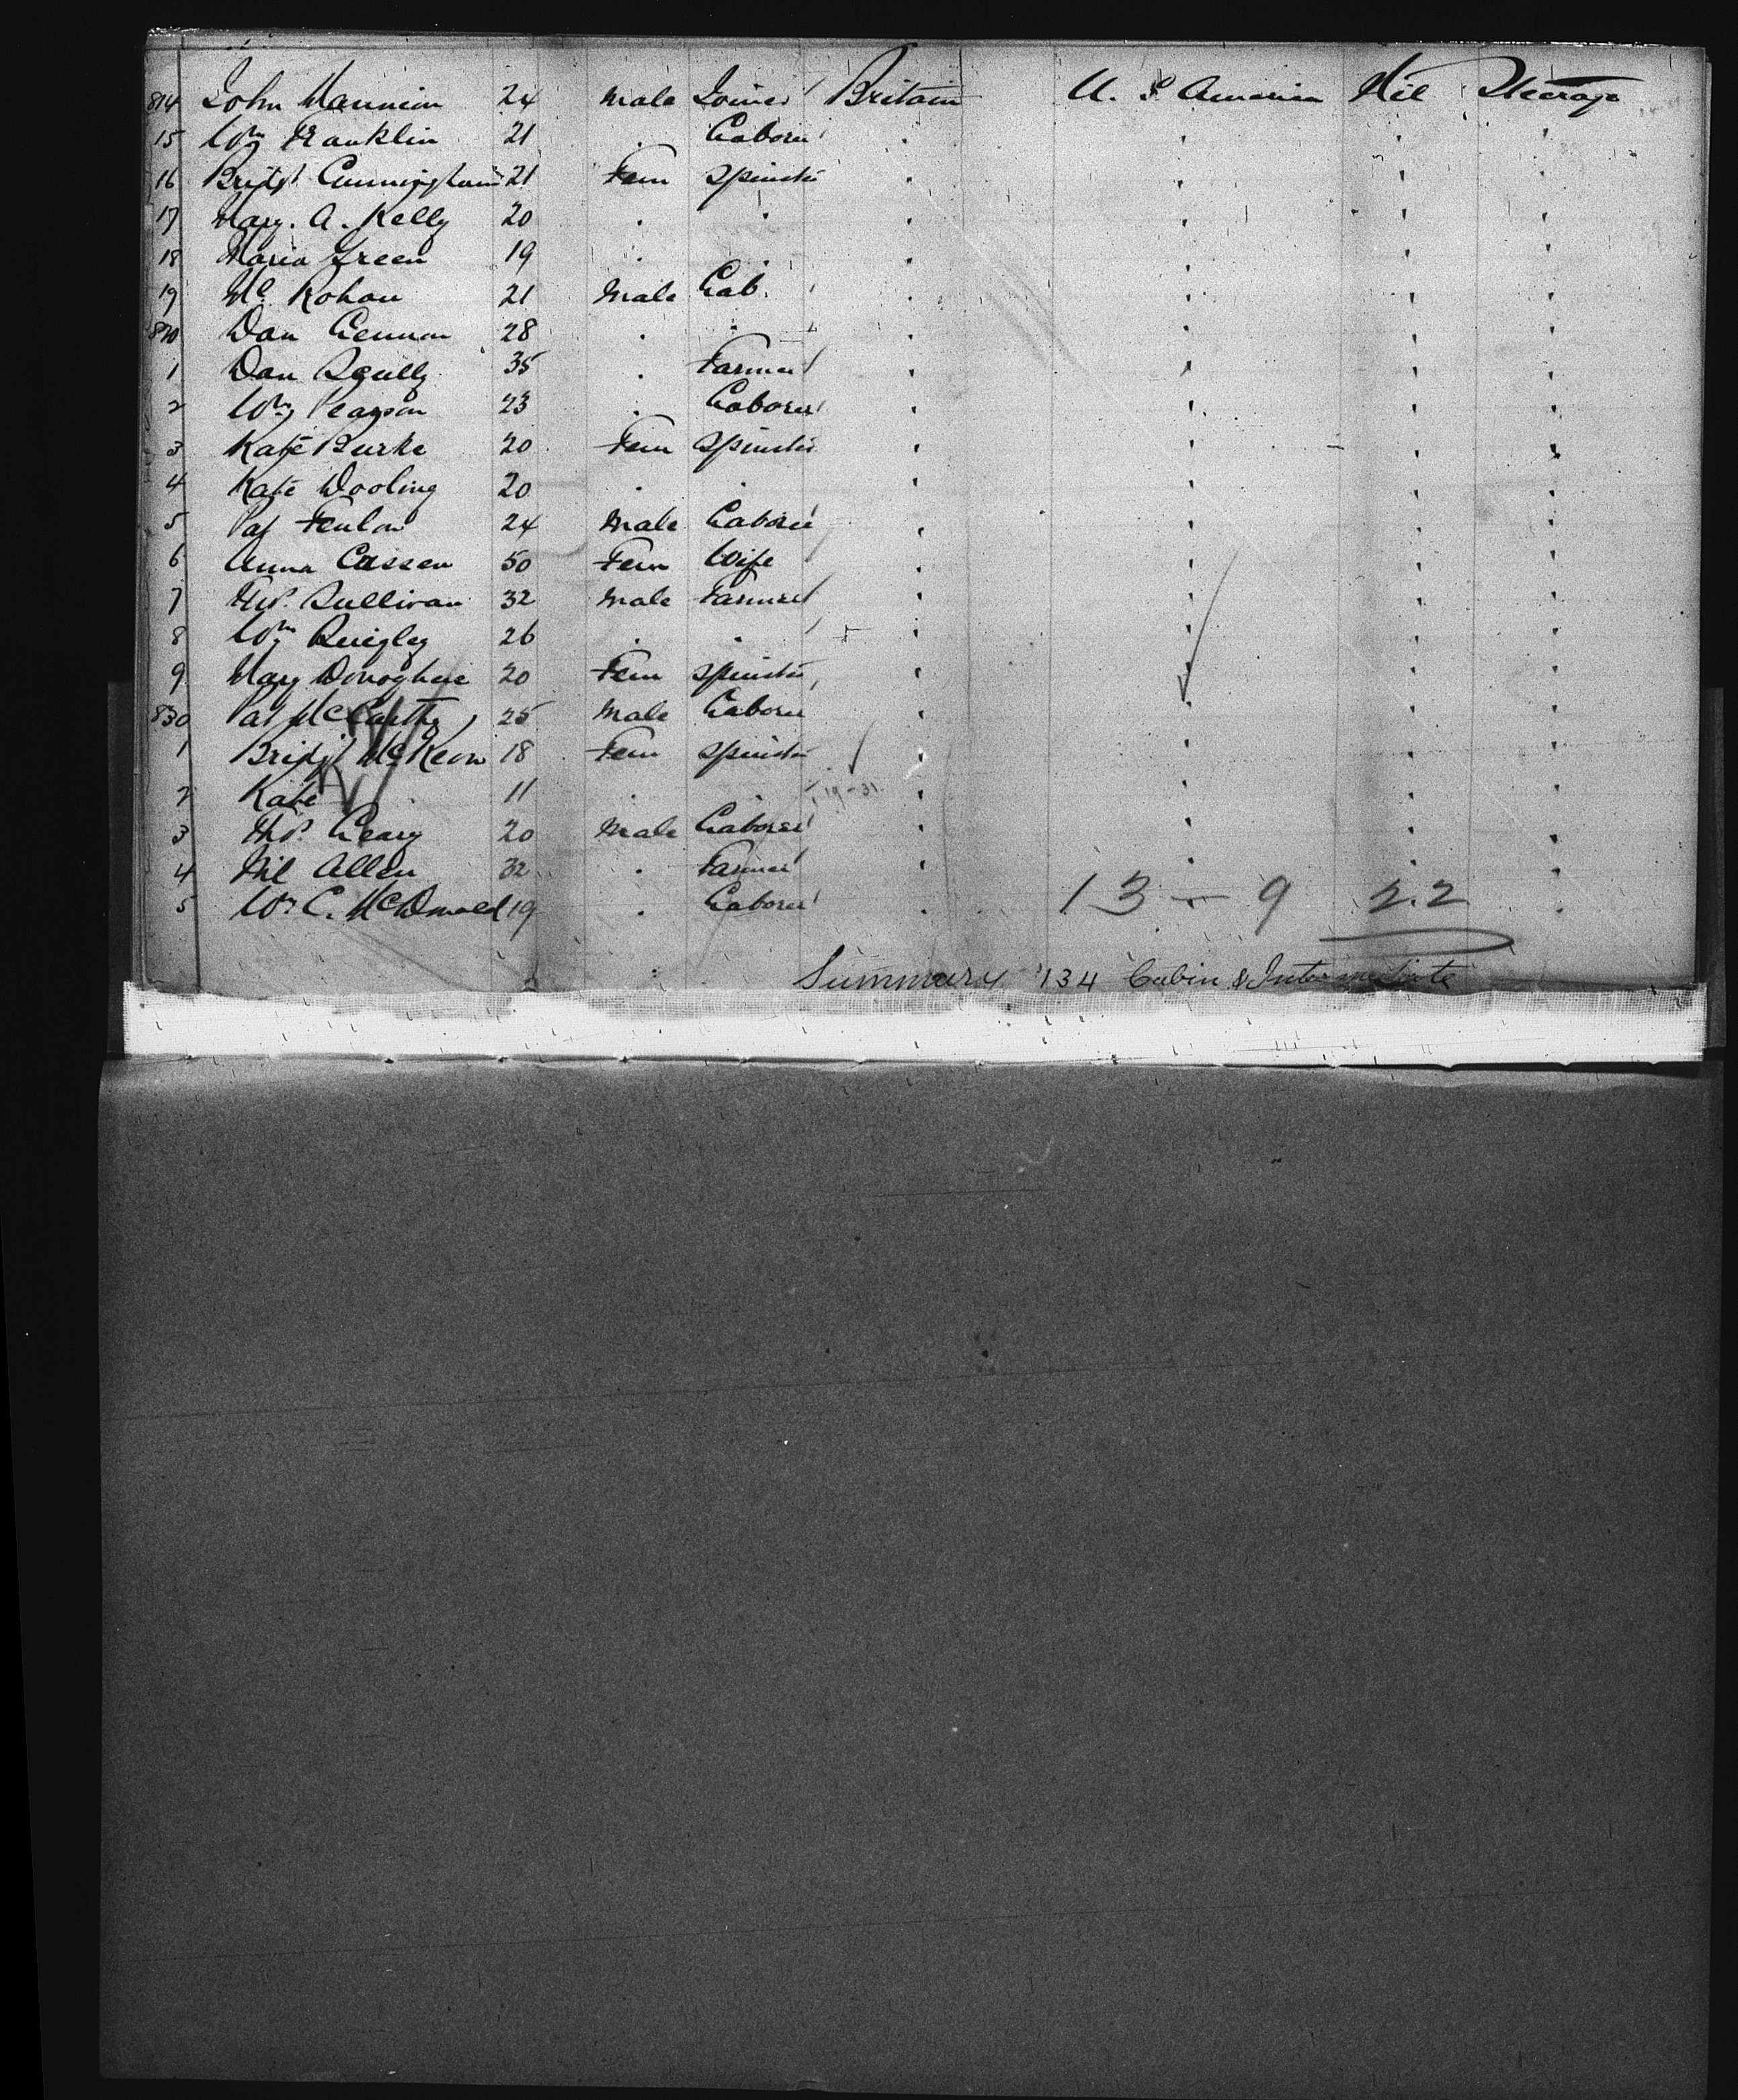 814 John Mannion 24 Male Joiner Britain U. S America Nil Steerage
15 Wm Franklin 21 . Laborer ' ' ' '
16 Bridgt Cunningham 21 Fem Spinster ' ' ' '
17 Mary. A. Kelly 20 . ' ' ' ' '
18 Maria Green 19 . . ' ' ' '
19 Ml Rohan 21 Male Lab. ' ' ' '
820 Dan Lennon 28 . . ' ' ' '
1 Dan Scully 35 . Farmer ' ' ' '
2 Wm Pearson 23 . Laborer ' ' ' '
3 Kate Burke 20 Fem Spinster ' ' ' '
4 Kate Dooling 20 . . ' ' ' '
5 Pat Fenlon 24 Male Laborer ' ' ' '
6 Anna Cassen 50 Fem Wife ' ' ' '
7 Sullivan 32 Male Farmer ' ' ' '
8 Wm Quigley 26 . . ' ' ' '
9 Mary Donoghue 20 Fem Spinster ' ' ' '
830 Pat McCarthy 25 Male Laborer ' ' ' '
1 Bridgt McKeon 18 Fem Spinster ' ' ' '
2 Kate . 11 . . ' ' ' '
3 Thos. Leary 20 Male Laborer ' ' ' '
4 Allen 32 . Farmer ' ' ' '
5 Wm C. McDonald 19 . Laborer . 13 - 9 22 .
Summary 134 Cabin & Intermediate